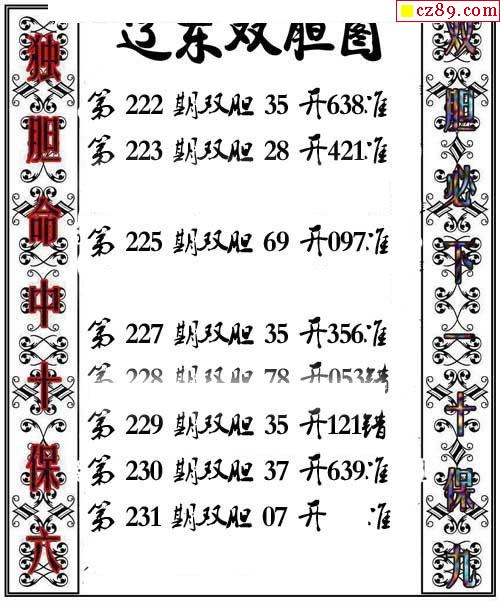 cz89.com
辽东双胆图
第 222 期双胆 35 开638准
第 223 期双胆 28 开421准
第 225 期双胆 69 开097准
第 227 期双胆 35 开356准
第 228 期双胆 78 开053错
第 229 期双胆 35 开121错
第 230 期双胆 37 开639准
第 231 期双胆 07 开 准
独胆命中十保六
双胆必下一十保九